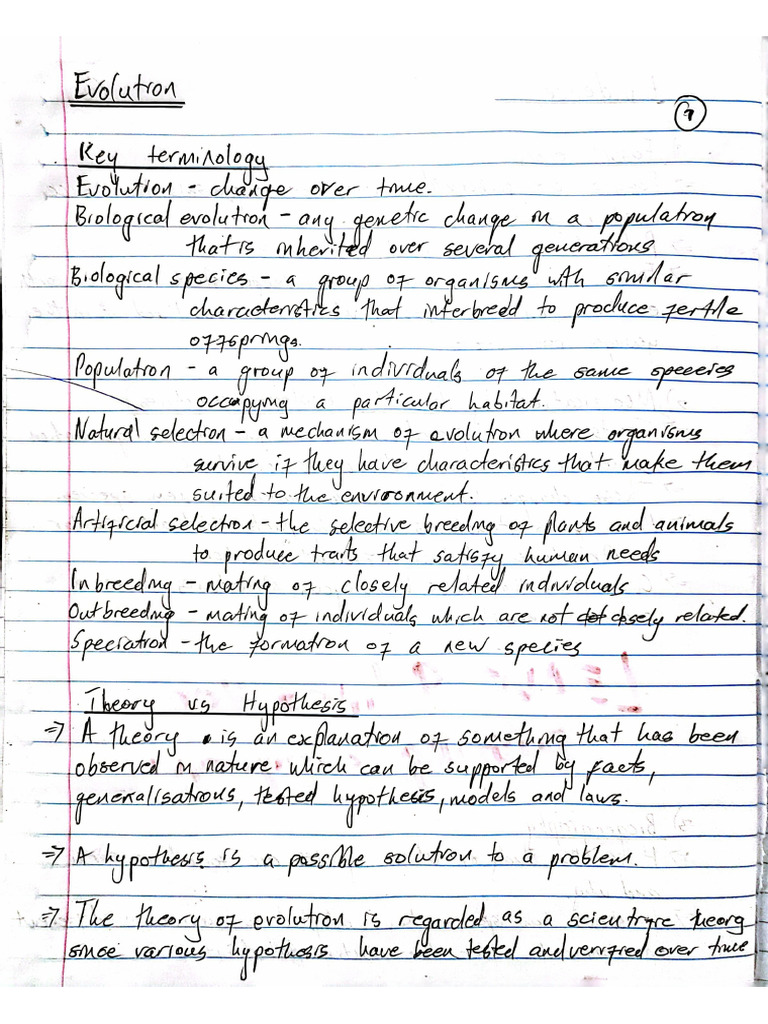 Evolution
7
Key terminology
Evolution - change over time.
Biological evolution - any genetic change in a population
that is inherited over several generations
Biological species - a group of organisms with similar
characteristics that interbreed to produce fertile
offsprings.
Population - a group of individuals of the same speecies
occupying a particular habitat.
Natural selection - a mechanism of evolution where organisms
survive if they have characteristics that make them
suited to the environment.
Artificial selection - the selective breeding of plants and animals
to produce traits that satisfy human needs
Inbreeding - mating of closely related individuals
Outbreeding - mating of individuals which are not closely related.
Speciation - the formation of a new species
Theory vs Hypothesis
=> A theory is an explanation of something that has been
observed in nature which can be supported by facts,
generalisations, tested hypothesis, models and laws.
=> A hypothesis is a possible solution to a problem.
=> The theory of evolution is regarded as a scientific theory
since various hypothesis have been tested and verified over time